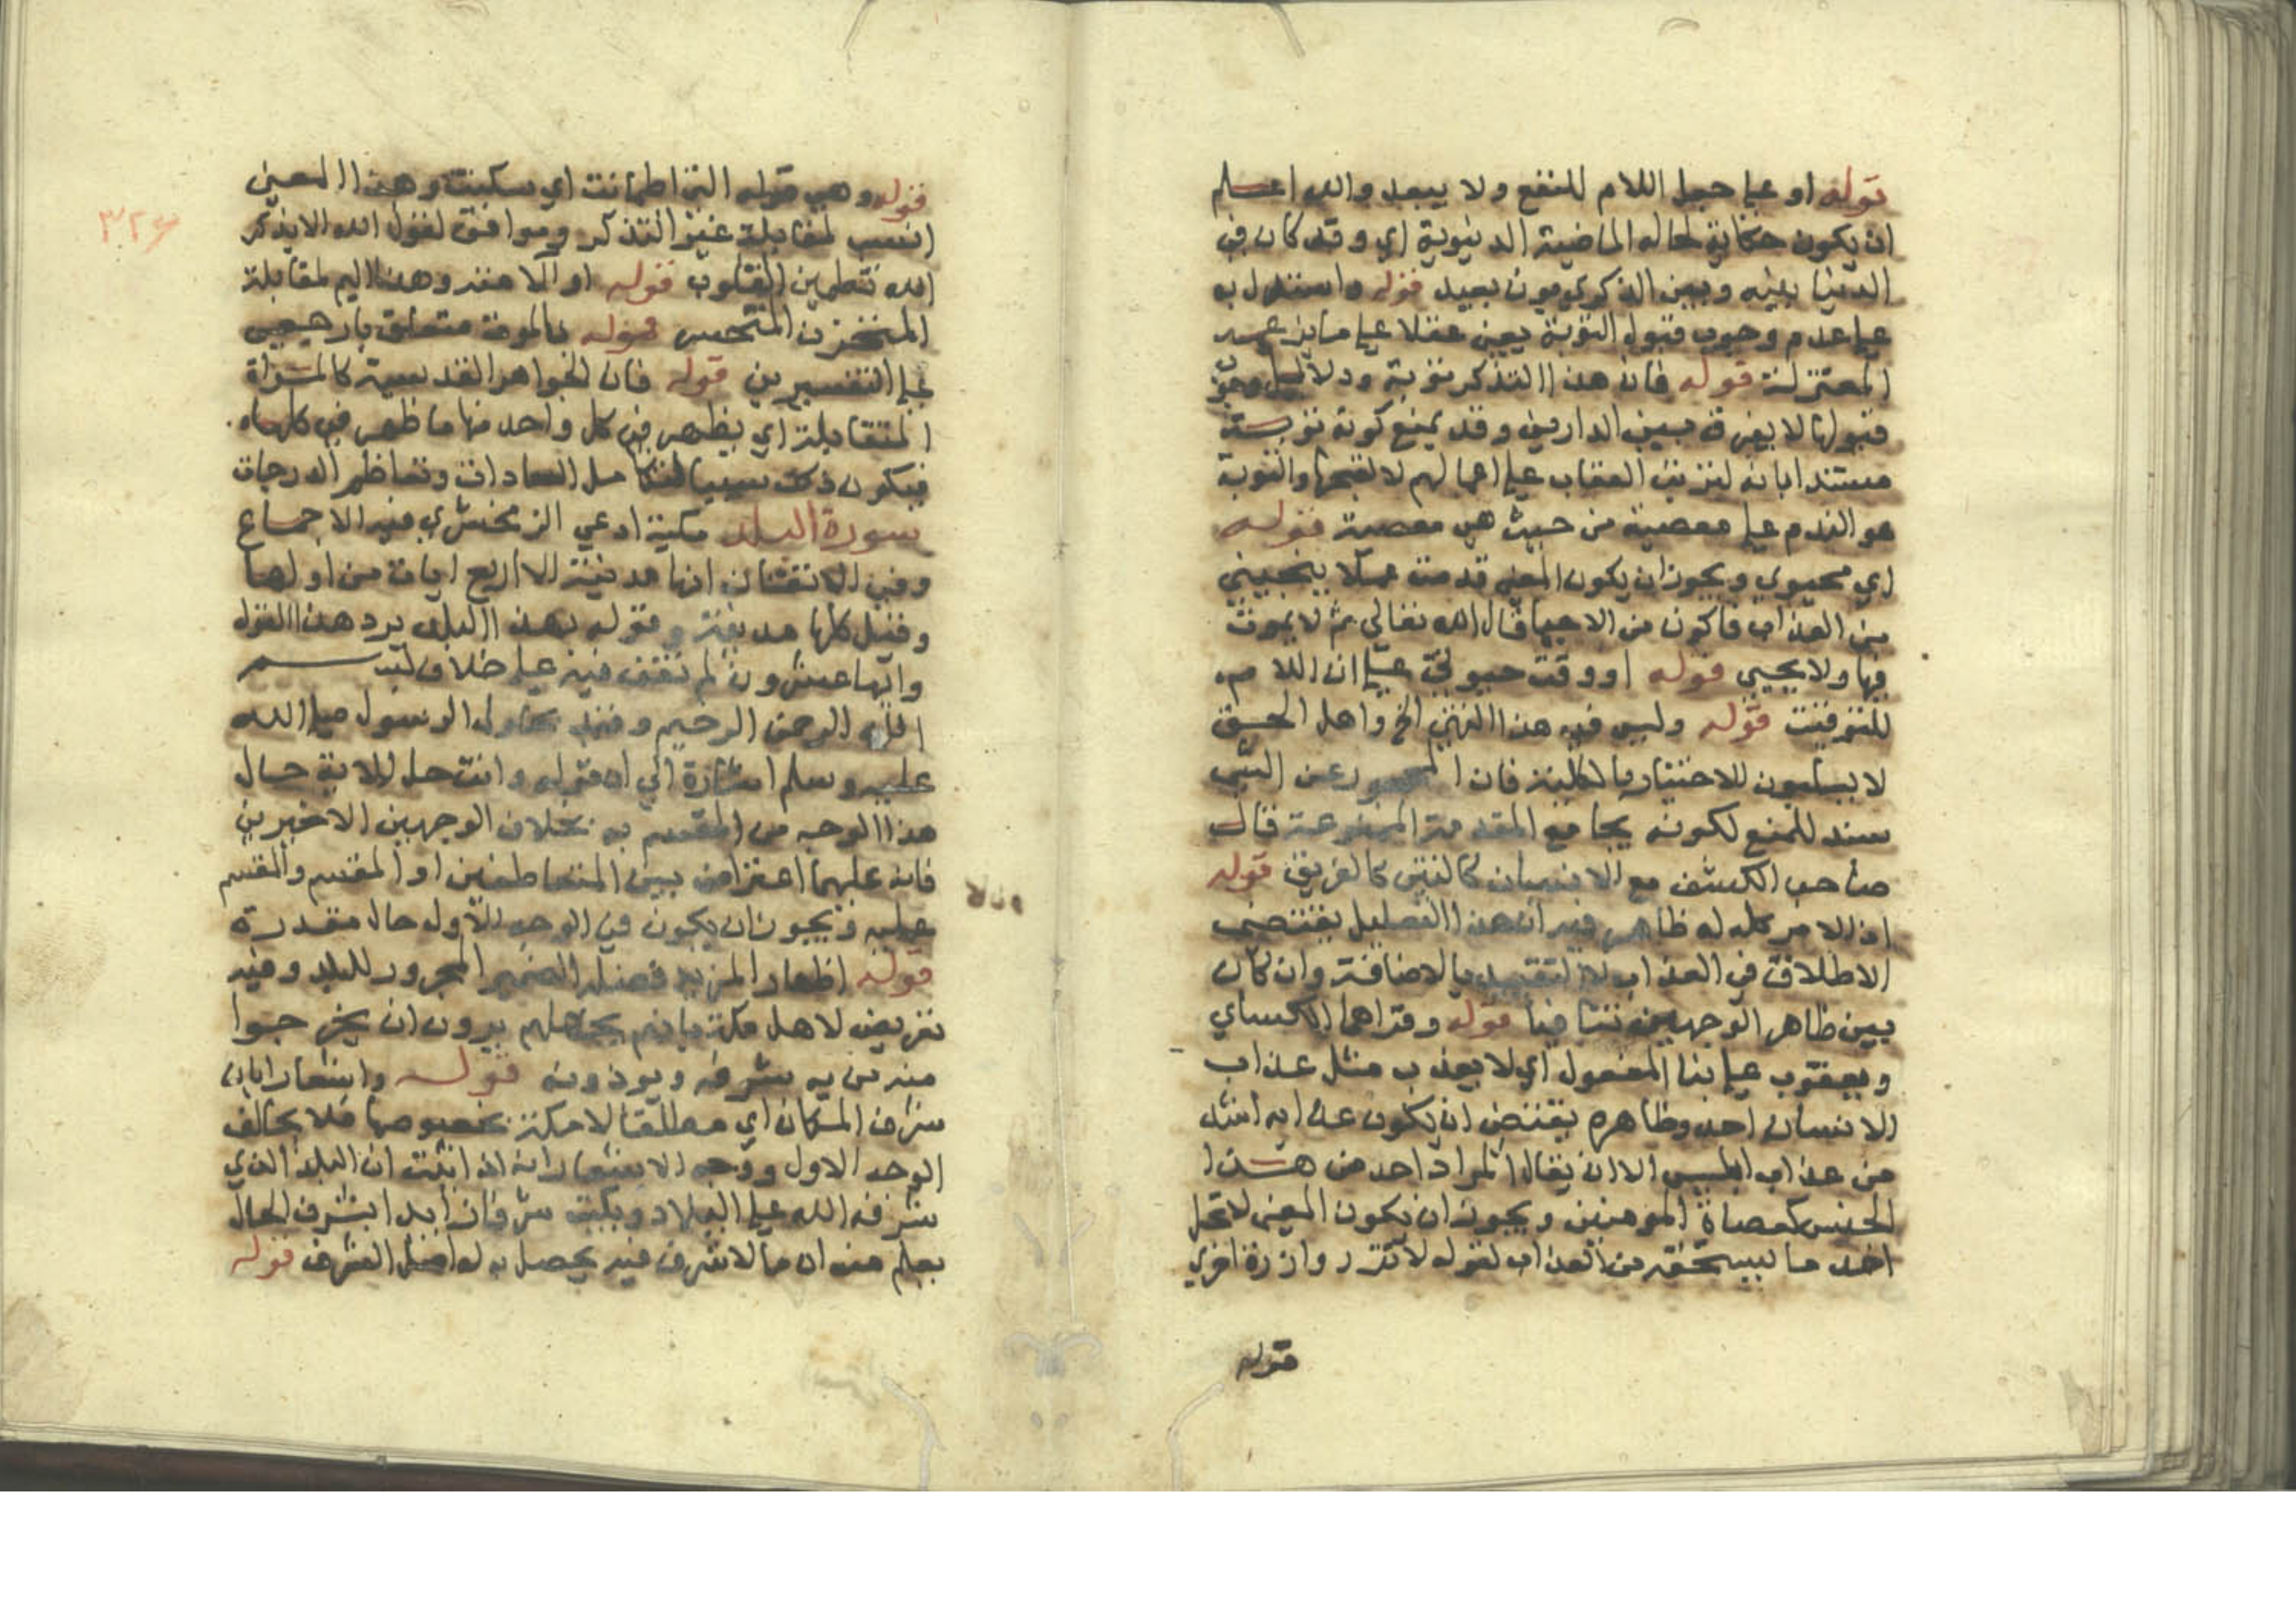 قوله او على حعل اللام للنفع ولا يبعد والله اعلم
ان يكون حكاية لحاله الماضية الدنيوية اي وقد كان في
الدنيا بينه وبين الذكري بون بعيد قوله واستدل به
على عدم وجوب قبول التوبة يعني عقلا على ما يزعمه
المعتزلة قوله فان هذا التذكر توبة ودلائل وجوب
قبولها لا يفرق بين الدارين وقد يمنع كونه توبة
مستندا بانه لترتب العقاب على اعمالهم لا لقبحها والتوبة
هو الندم على معصية من حيث هي معصية قوله
اي محيوي ويجوز ان يكون المعنى قدمت عملا ينجيني
من العذاب فاكون من الاحيا قال الله تعالى ثم لا يموت
فيها ولا يحيى قوله او وقت حيوتي على ان اللام
للتوقيت قوله وليس فيه هذا التمني الخ واهل الحق
لا يسلبون الاختيار بالكلية فان المحجور عن الشي
سند للمنع لكونه يجامع المقدمة الممنوعة قال
صاحب الكشف مع الانسان كالغريق قوله
اذ الامر كله له ظاهره فيه ان هذا التعليل يقتضي
الاطلاق في العذاب لا التقييد بالاضافة وان كان
بين ظاهر الوجهين تنافيا قوله وقراهما الكساي
ويعقوب على بنا المفعول اي لا يعذب مثل عذاب
الانسان احد وظاهره يقتضي ان يكون عذابه اشد
من عذاب ابليس الا ان يقال المراد احد من هذا
الجنس كعصاة المومنين ويجوز ان يكون المعنى لا تحمل
احد ما يستحقه من العذاب لقوله لا تزر وازرة اخري
قوله
٣٢٦
قوله وهي قوله التي اطمانت اي سكينة وهذا المعنى
انسب لمقابلة غير التذكر وموافق لقول الله الا بذكر
الله تطمين القلوب قوله او الامنة وهذا اليم لمقابلة
المتحزن المتحسر قوله بالموت متعلق بارجعي
على التفسيرين قوله فان الجواهر القدسية كالمراة
المتقابلة اي يظهر في كل واحد منها ما ظهر في كلها
فيكون ذلك سببا لتكامل السعادات وتعاظم الدرجات
سورة البلد مكية ادعي الزمخشري فيه الاجماع
وفي الاتقان انها مدنية الا اربع ايات من اولها
وقيل كلها مدنية وقوله بهذا البلد يرد هذا القول
وايها عشرون لم نقف فيه على خلاف بسم
الله الرحمن الرحيم وقيد بحلول الرسول صلى الله
عليه وسلم اشارة الي ان قوله وانت حل الاية حال
هذا الوجه من المقسم به بخلاف الوجهين الاخيرين
فانه عليهما اعتراض بين المتعاطفين او المقسم والمقسم
عليه ويجوز ان يكون في الوجه الاول حال مقدرة
قوله اظهار المزيد فضله الضمير المجرور للبلد وفيه
تعريض لاهل مكة بانهم بجهلهم يرون ان يخرجوا
منه من به شرفه ويوذونه قوله واشعارا بان
شرف المكان اي مطلقا لا مكة بخصوصها فلا يخالف
الوجه الاول ووجه الاشعار انه اذا ثبت ان البلد الذي
شرفه الله على البلاد ويكتب شرفا زايدا بشرف الحال
يعلم منه ان ما لا شرف فيه يحصل به له اصل الشرف قوله